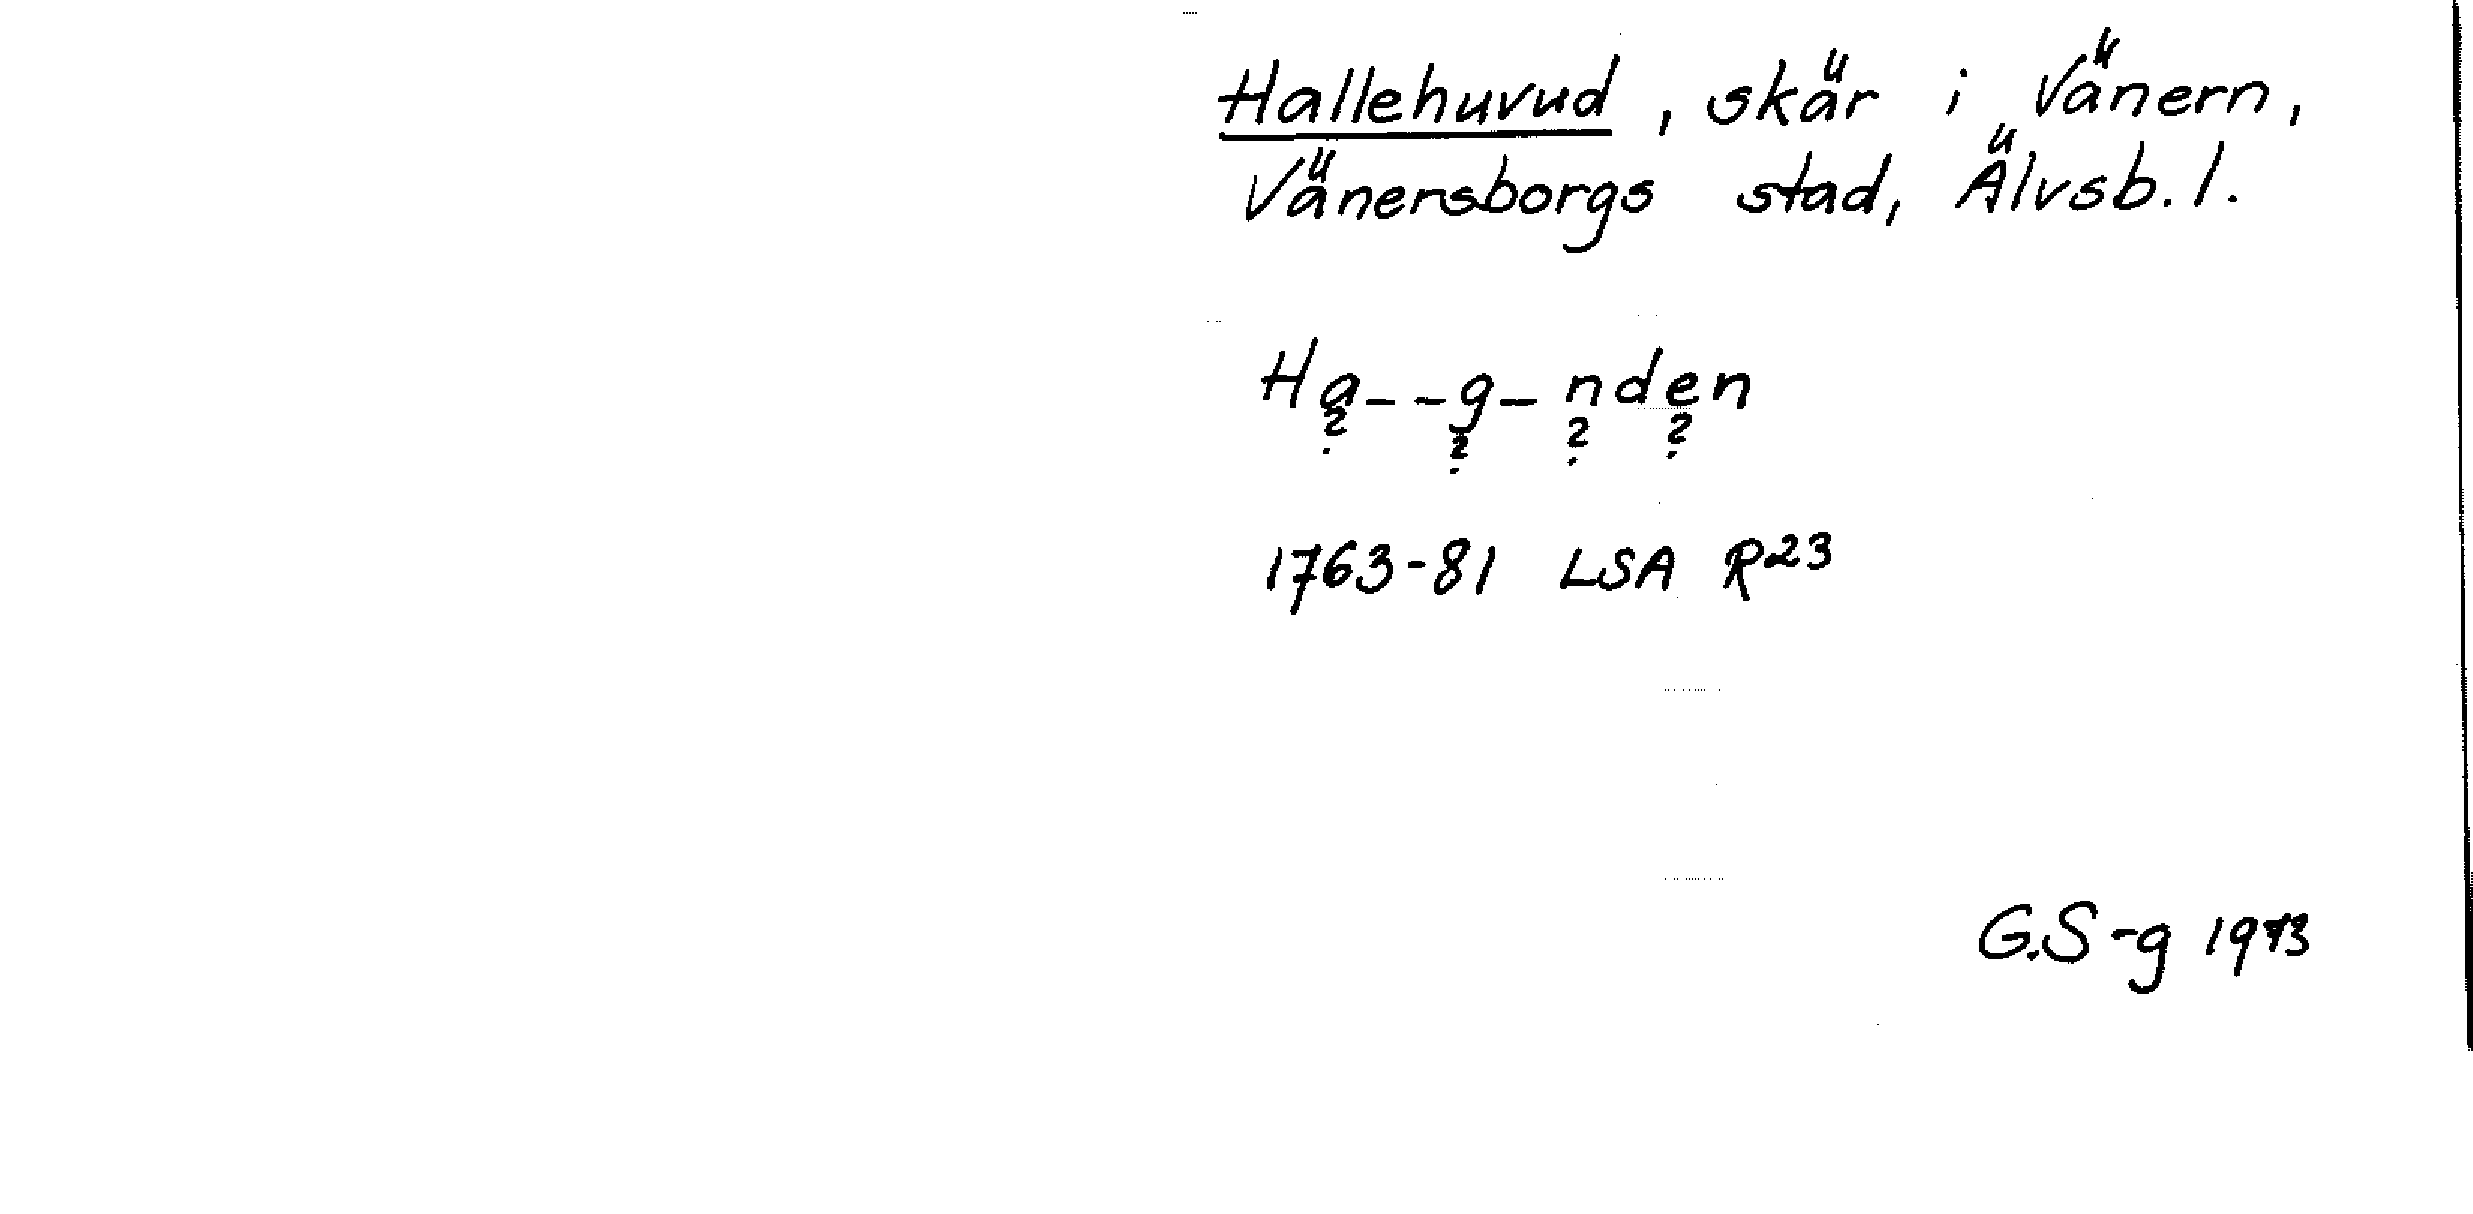 Hallehuvud, skär i Vänern,
Vänersborgs stad, Älvsb. l.
Ha--g-nden
? ? ? ?
1763-81 LSA R23
G.S-g 1973